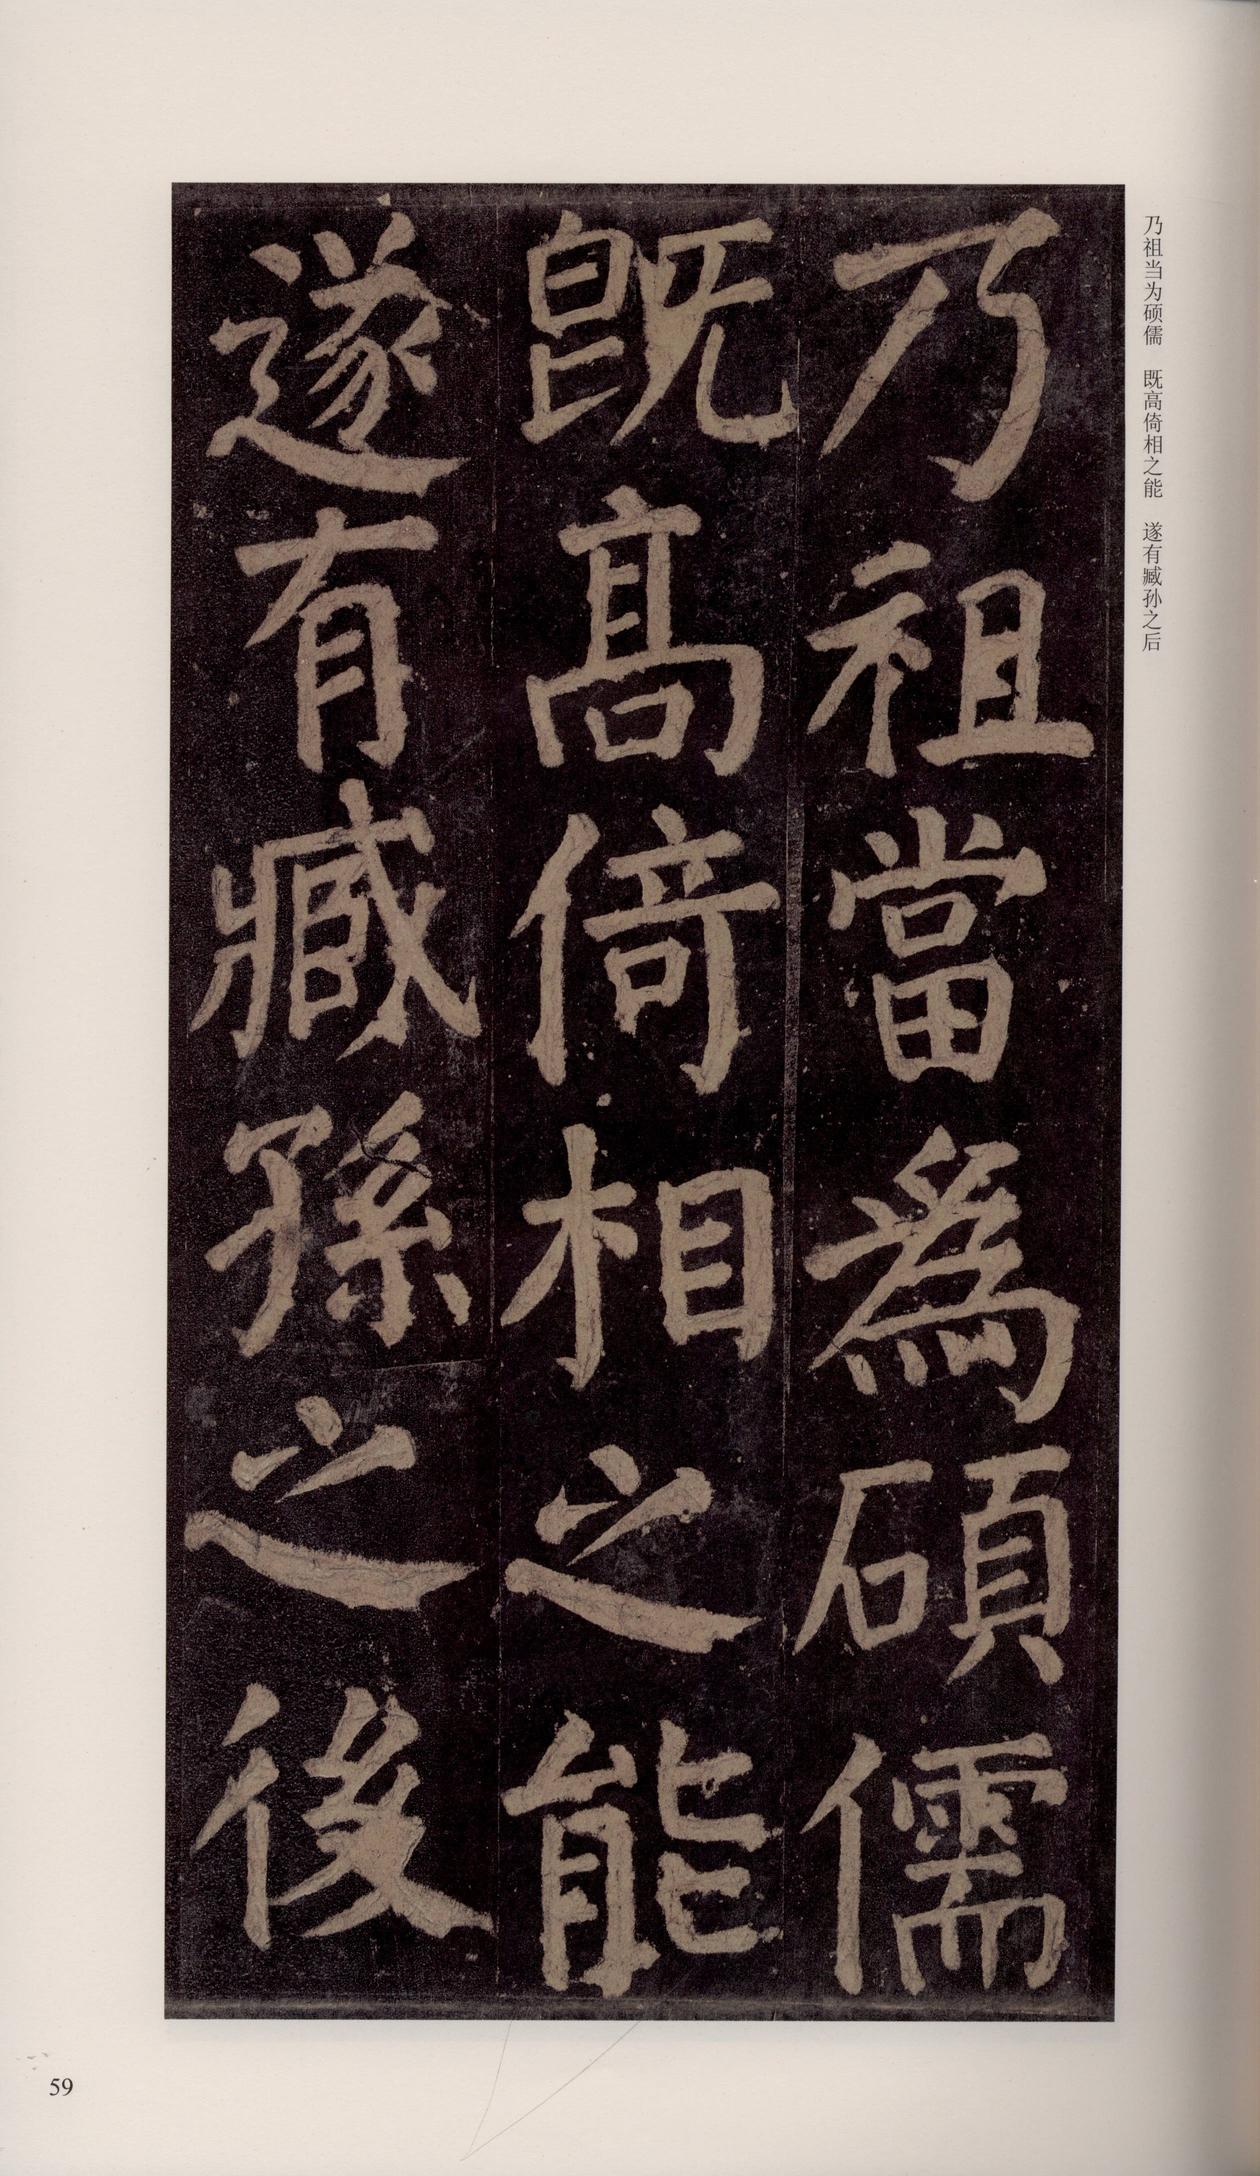 乃祖当为硕儒　既高倚相之能　遂有臧孙之后
乃祖當為碩儒
既髙倚相之能
遂有臧孫之後
59